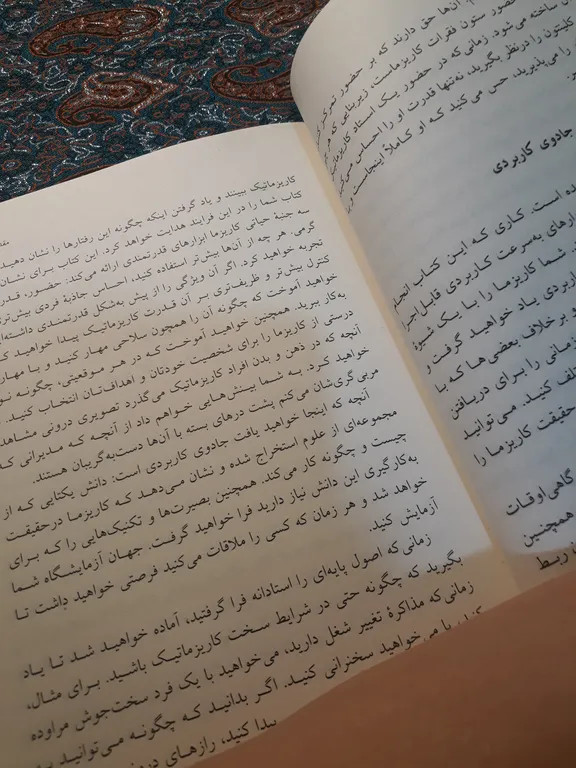 آن‌ها حق دارند که بر حضور تمرکز
حضور ستون فقرات کاریزماست، زیربنایی که هر
آن ساخته می‌شود. زمانی که در حضور یک استاد کاریزما
کلینتون را درنظر بگیرید، نه‌تنها قدرت او را احساس می‌کنید
را می‌پذیرید، حس می‌کنید که او کاملاً اینجاست و
جادوی کاربردی
ده است. کاری که این کتاب انجام
ارهای به‌سرعت کاربردی قابل‌اجرا
شما کاریزما را با یک شیوهٔ
اربردی یاد خواهید گرفت و
و برخلاف بعضی‌ها که با
زمانی را برای دریافتن
تلف کنید. می‌توانید
حقیقت کاریزما را
گاهی‌اوقات
همچنین
ربط
کاریزماتیک ببینند و یاد گرفتن اینکه چگونه این رفتارها را نشان دهید
کتاب شما را در این فرایند هدایت خواهد کرد. این کتاب برای نشان
سه جنبهٔ حیاتی کاریزما ابزارهای قدرتمندی ارائه می‌کند: حضور، قدر
گرمی. هر چه از آن‌ها بیش‌تر استفاده کنید، احساس جاذبهٔ فردی بیش‌تری
تجربه خواهید کرد. اگر آن ویژگی را از پیش به‌شکل قدرتمندی داشته‌ا
کنترل بیش‌تر و ظریف‌تری بر آن قدرت کاریزماتیک پیدا خواهید ک
خواهید آموخت که چگونه آن را همچون سلاحی مهار کنید و با مهار
به‌کار ببرید. همچنین خواهید آموخت که در هر موقعیتی، چگونه نو
درستی از کاریزما را برای شخصیت خودتان و اهداف‌تان انتخاب کنید.
آنچه که در ذهن و بدن افراد کاریزماتیک می‌گذرد تصویری درونی مشاهد
خواهید کرد. به شما بینش‌هایی خواهم داد از آنچه که مدیرانی که
مربی‌گری‌شان می‌کنم پشت درهای بسته با آن‌ها دست‌به‌گریبان هستند.
آنچه که اینجا خواهید یافت جادوی کاربردی است: دانش یکتایی که از
مجموعه‌ای از علوم استخراج شده و نشان می‌دهد که کاریزما درحقیقت
چیست و چگونه کار می‌کند. همچنین بصیرت‌ها و تکنیک‌هایی را که برای
به‌کارگیری این دانش نیاز دارید فرا خواهید گرفت. جهان آزمایشگاه شما
خواهد شد و هر زمان که کسی را ملاقات می‌کنید فرصتی خواهید داشت تا
آزمایش کنید.
زمانی که اصول پایه‌ای را استادانه فرا گرفتید، آماده خواهید شد تا یاد
بگیرید که چگونه حتی در شرایط سخت کاریزماتیک باشید. برای مثال،
زمانی که مذاکرهٔ تغییر شغل دارید، می‌خواهید با یک فرد سخت‌جوش مراوده
کنید یا می‌خواهید سخنرانی کنید. اگر بدانید که چگونه می‌توانید
پیدا کنید، رازهای